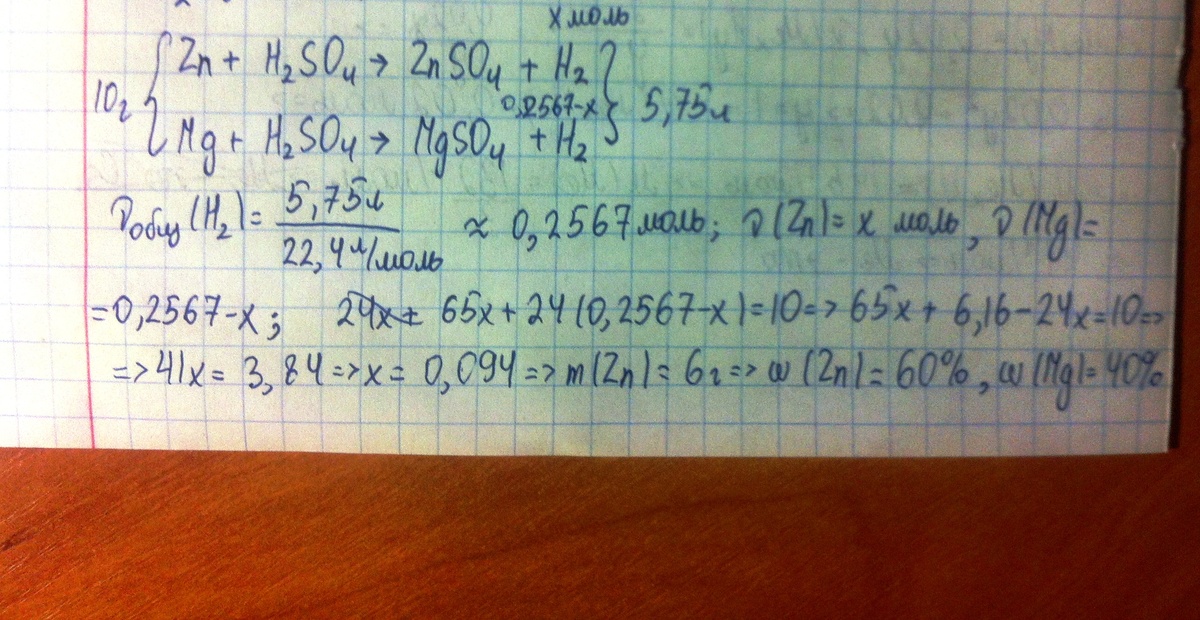 x моль
Zn + H₂SO₄ → ZnSO₄ + H₂
10г 0,2567-x 5,75л
Mg + H₂SO₄ → MgSO₄ + H₂
νобщ(H₂) = 5,75л / 22,4 л/моль ≈ 0,2567 моль; ν(Zn) = x моль, ν(Mg) =
= 0,2567 - x; 24x + 65x + 24(0,2567-x) = 10 => 65x + 6,16 - 24x = 10 =>
=> 41x = 3,84 => x = 0,094 => m(Zn) = 6г => ω(Zn) = 60%, ω(Mg) = 40%